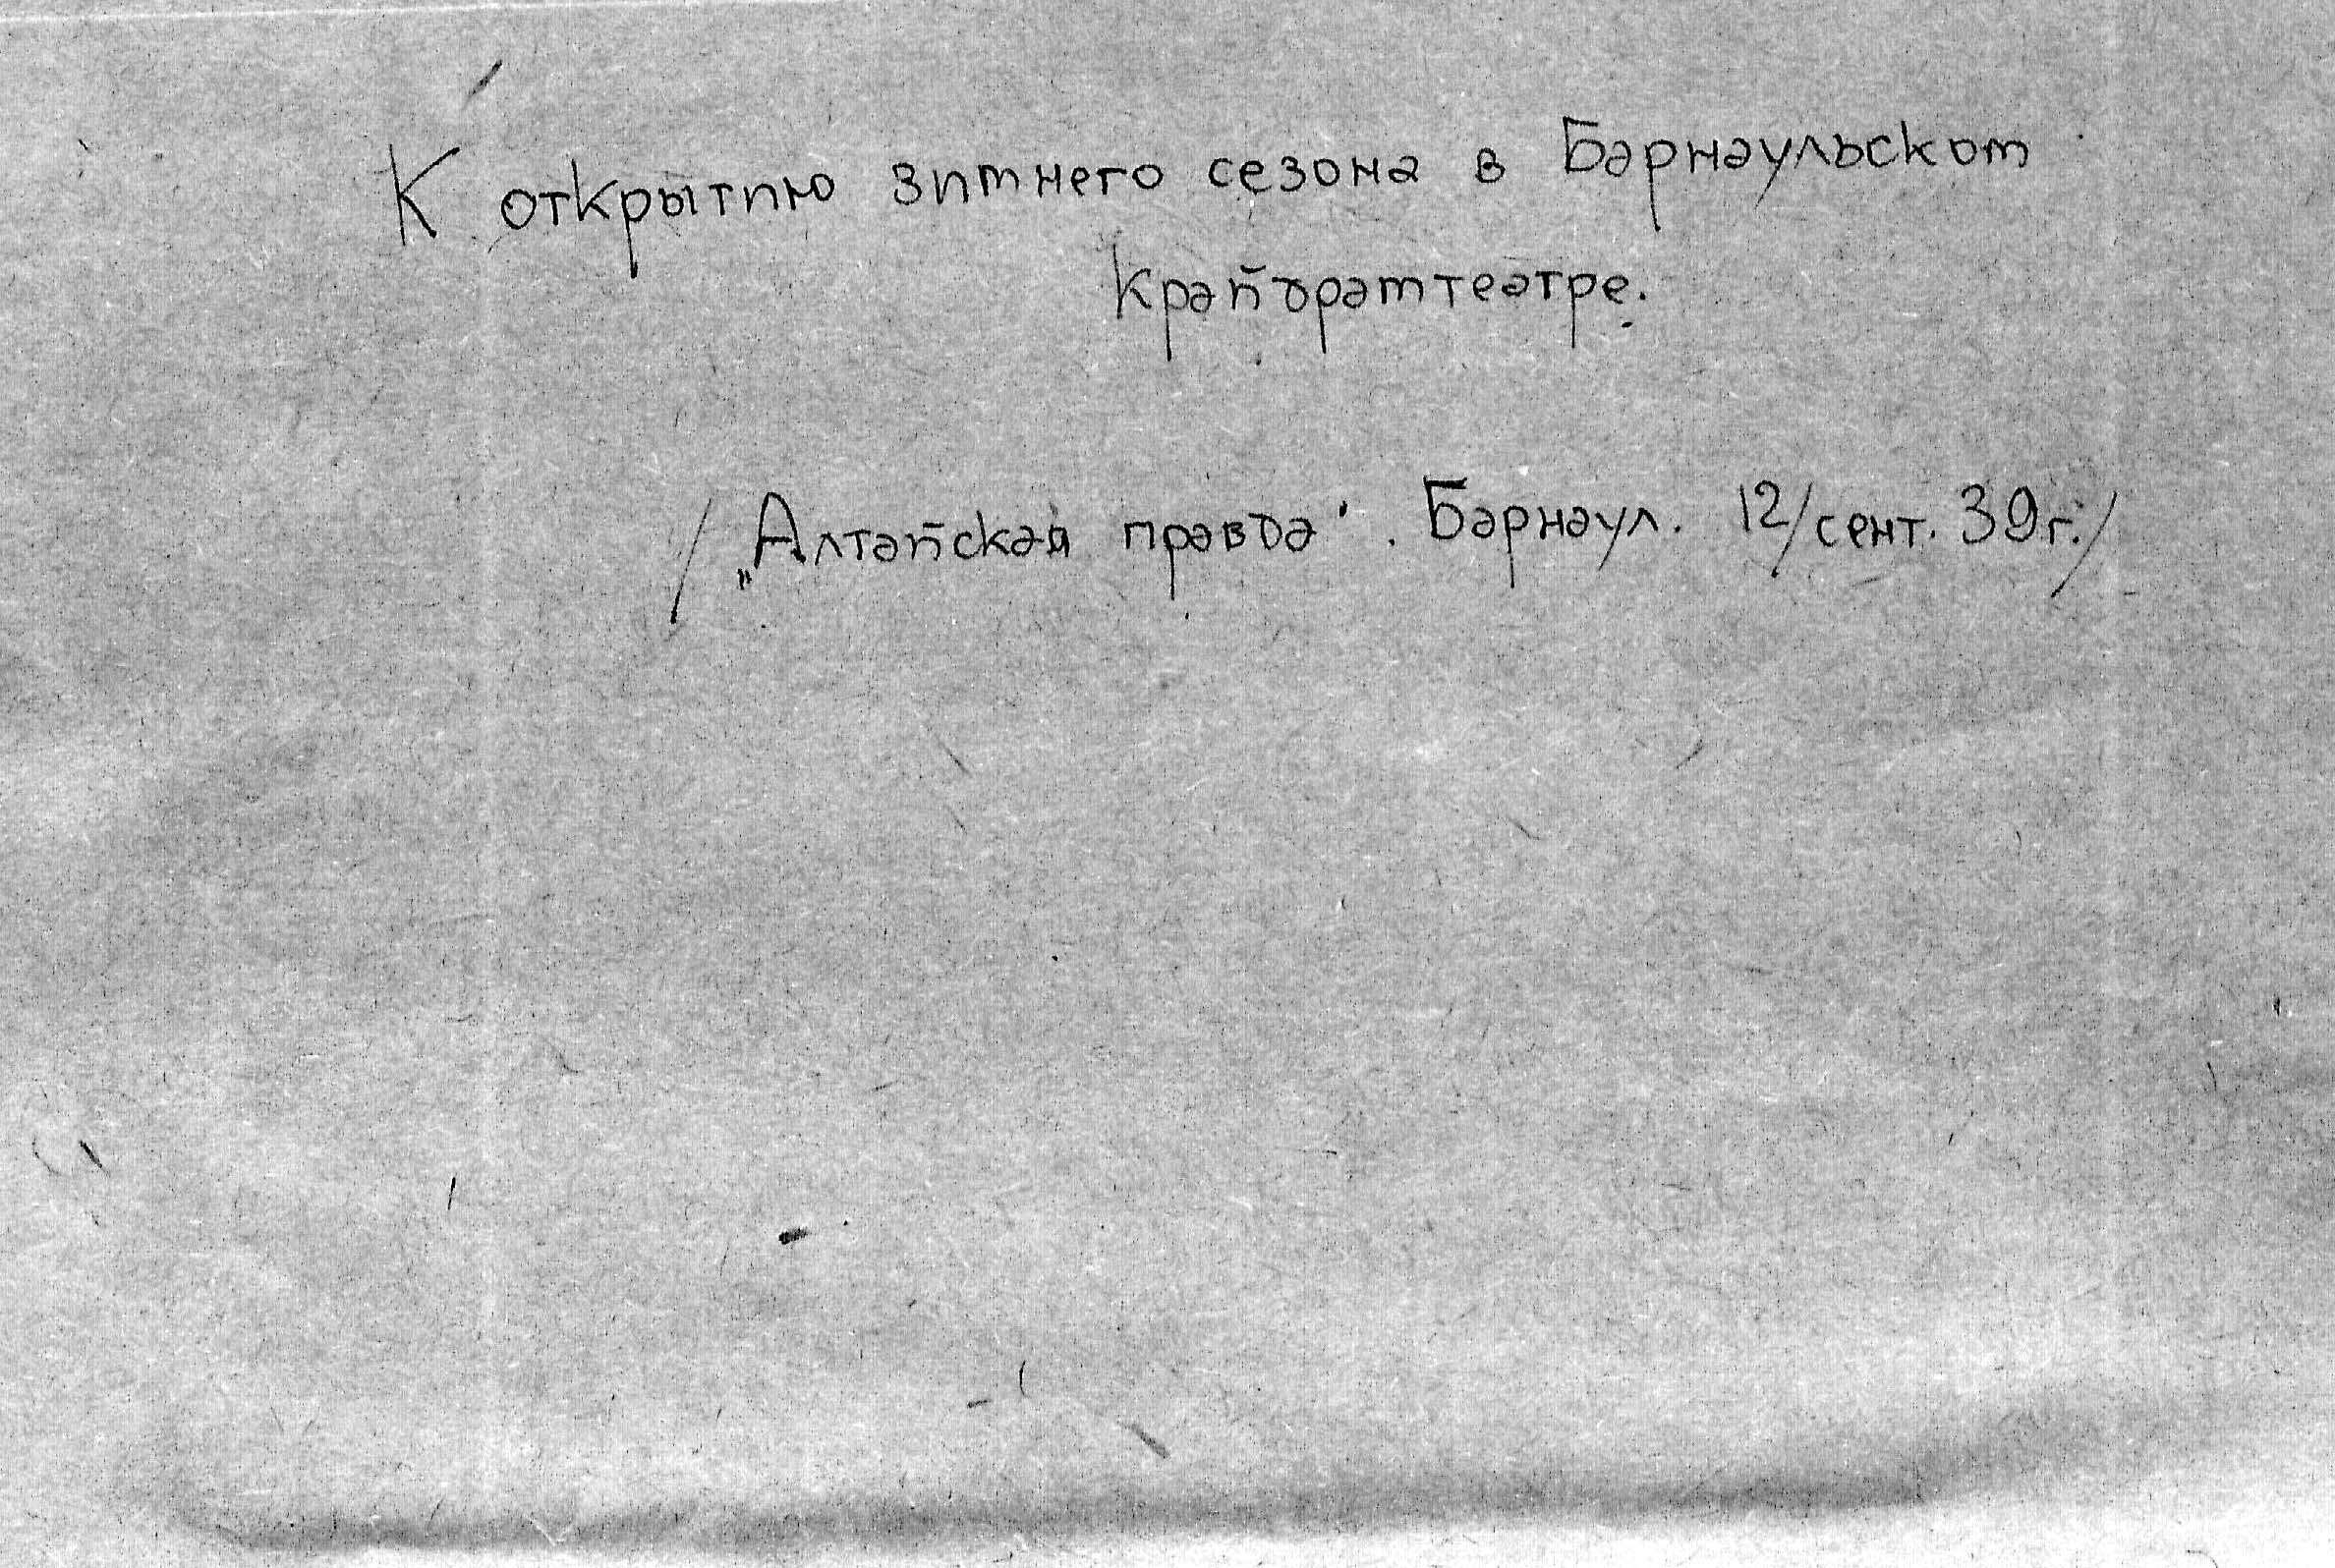 К открытию зимнего сезона в Барнаульском
Крайдрамтеатре.
/ „Алтайская правда". Барнаул. 12/сент. 39 г./